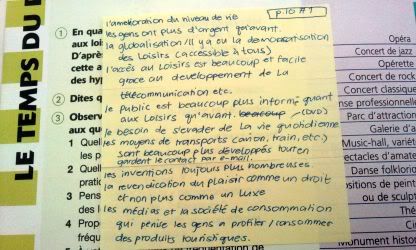 LE TEMPS DU
p.10 #1
l'amélioration du niveau de vie
les gens ont plus d'argent qu'avant.
la globalisation/Il y a eu la democratisation
des Loisirs (accessible à tous)
l'accès au Loisirs est beaucoup et facile
grace au developpement de La
télécommunication etc.
le Public est beaucoup plus informé quant
aux Loisirs qu'avant. beaucoup (DVD)
le besoin de s'evader de La vie quotidienne
les moyens de transports (avion, train, etc.)
sont beaucoup plus développés toten
gardent le contact par e-mail.
les inventions toujours plus nombreuses.
la revendication du plaisir comme un droit
et non plus comme un Luxe
les médias et la société de consommation
qui pousse les gens à profiter/consommer
des produits touristiques.
1 En qua
aux loi
D'aprè
cette a
des hyp
2 Dites q
3 Observ
aux qu
1 Quel
les p
2 Quell
prati
3 Pens
dans
4 Propo
fréqu
Opéra
Concert de jazz
Opérette
Concert de rock
Concert classique
nse professionnel
Parc d'attraction
Galerie d'a
Music-hall, variét
ectacles d'amate
Danse folklorio
ositions de peint
ou de sculpt
Thé